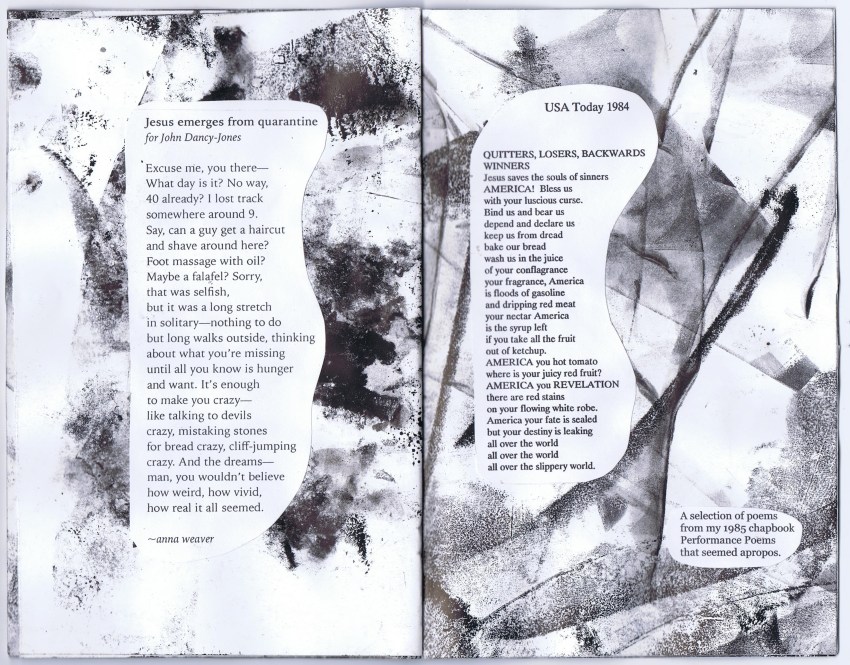 Jesus emerges from quarantine
for John Dancy-Jones
Excuse me, you there—
What day is it? No way,
40 already? I lost track
somewhere around 9.
Say, can a guy get a haircut
and shave around here?
Foot massage with oil?
Maybe a falafel? Sorry,
that was selfish,
but it was a long stretch
in solitary—nothing to do
but long walks outside, thinking
about what you're missing
until all you know is hunger
and want. It's enough
to make you crazy—
like talking to devils
crazy, mistaking stones
for bread crazy, cliff-jumping
crazy. And the dreams—
man, you wouldn't believe
how weird, how vivid,
how real it all seemed.
~anna weaver
USA Today 1984
QUITTERS, LOSERS, BACKWARDS
WINNERS
Jesus saves the souls of sinners
AMERICA! Bless us
with your luscious curse.
Bind us and bear us
depend and declare us
keep us from dread
bake our bread
wash us in the juice
of your conflagrance
your fragrance, America
is floods of gasoline
and dripping red meat
your nectar America
is the syrup left
if you take all the fruit
out of ketchup.
AMERICA you hot tomato
where is your juicy red fruit?
AMERICA you REVELATION
there are red stains
on your flowing white robe.
America your fate is sealed
but your destiny is leaking
all over the world
all over the world
all over the slippery world.
A selection of poems
from my 1985 chapbook
Performance Poems
that seemed apropos.